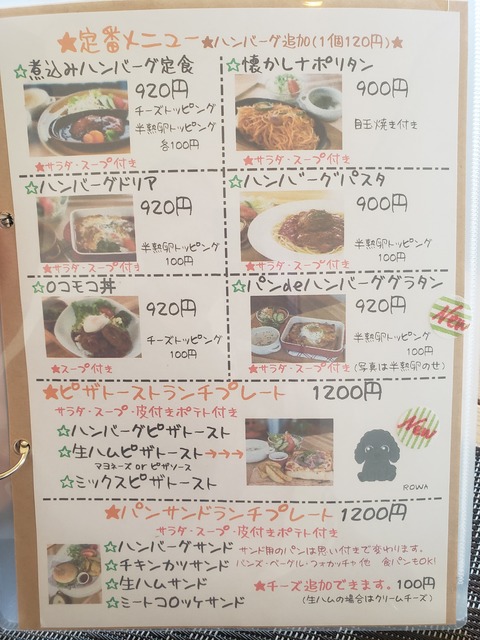 ★定番メニュー★ハンバーグ追加(1個120円)★
☆煮込みハンバーグ定食
920円
チーズトッピング
半熟卵トッピング
各100円
★サラダ・スープ付き
☆懐かしナポリタン
900円
目玉焼き付き
★サラダ・スープ付き
☆ハンバーグドリア
920円
半熟卵トッピング
100円
★サラダ・スープ付き
☆ハンバーグパスタ
900円
半熟卵トッピング
100円
★サラダ・スープ付き
☆ロコモコ丼
920円
チーズトッピング
100円
★スープ付き
☆パンdeハンバーググラタン
920円
New
半熟卵トッピング
100円
★サラダ・スープ付き
(写真は半熟卵のせ)
★ピザトーストランチプレート 1200円
サラダ・スープ・皮付きポテト付き
New
☆ハンバーグピザトースト
☆生ハムピザトースト→→→
マヨネーズ or ピザソース
☆ミックスピザトースト
ROWA
★パンサンドランチプレート 1200円
サラダ・スープ・皮付きポテト付き
☆ハンバーグサンド
サンド用のパンは思い付きで変わります。
☆チキンカツサンド
バンズ・ベーグル・フォカッチャ他 食パンもOK!
☆生ハムサンド
★チーズ追加できます。100円
☆ミートコロッケサンド
(生ハムの場合はクリームチーズ)